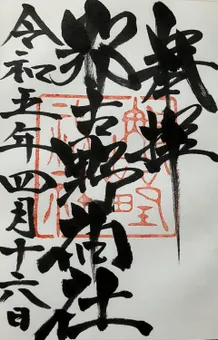 奉拝
吉野神社
令和五年四月十六日